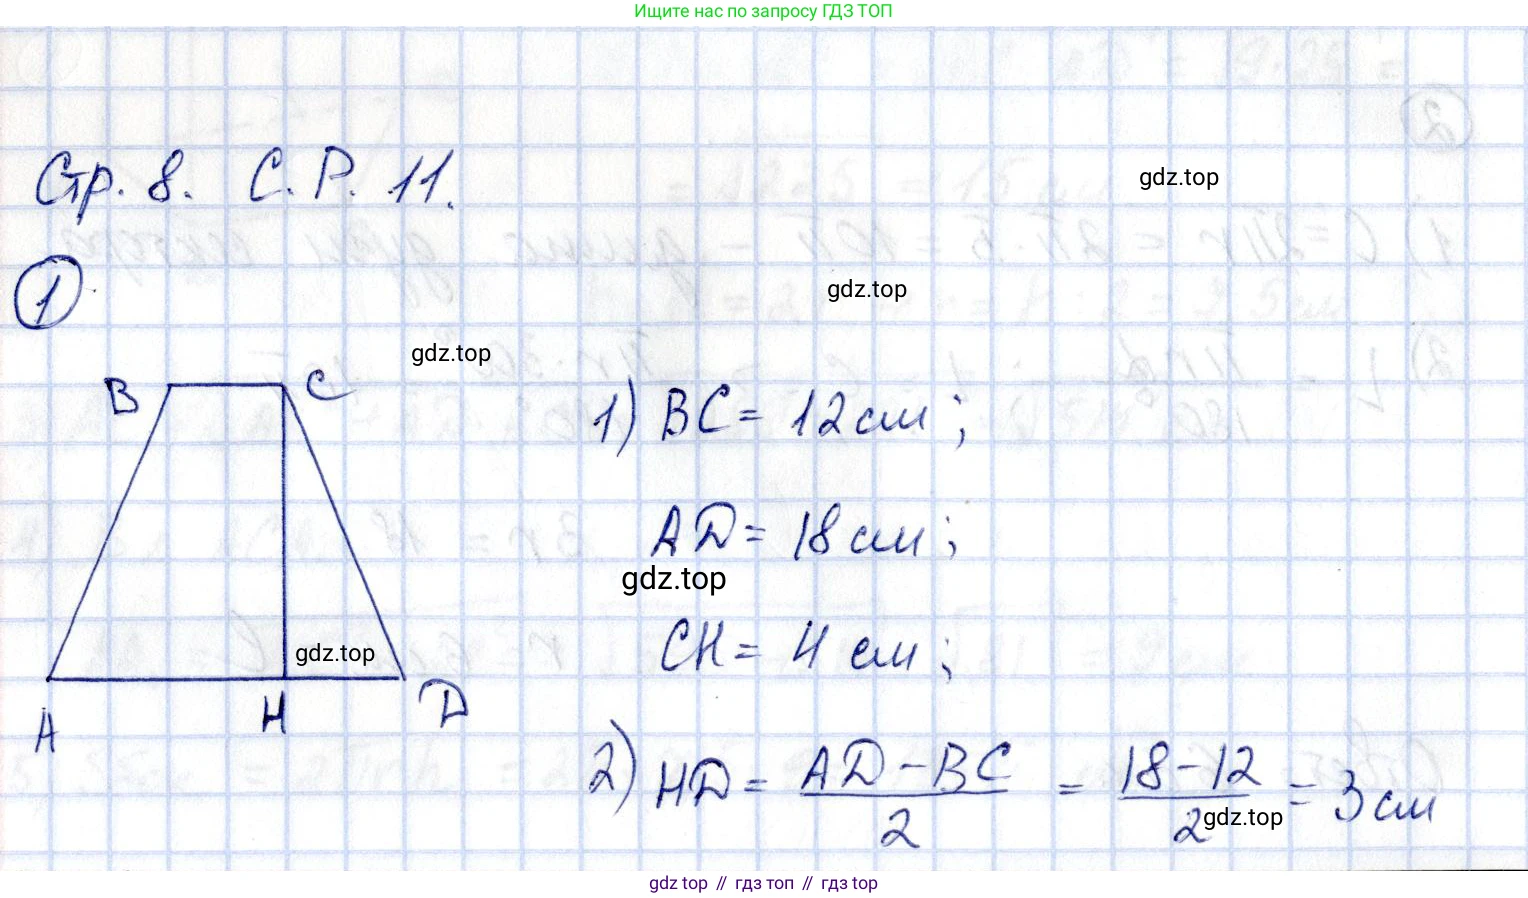 Ищите нас по запросу ГДЗ ТОП
Стр. 8. С. Р. 11.
gdz.top
1
gdz.top
gdz.top
B
C
1) BC = 12 см ;
AD = 18 см ;
gdz.top
CH = 4 см ;
gdz.top
A
H
D
2) HD = \frac{AD - BC}{2} = \frac{18 - 12}{2} = 3 см
gdz.top
gdz top // гдз топ // гдз top